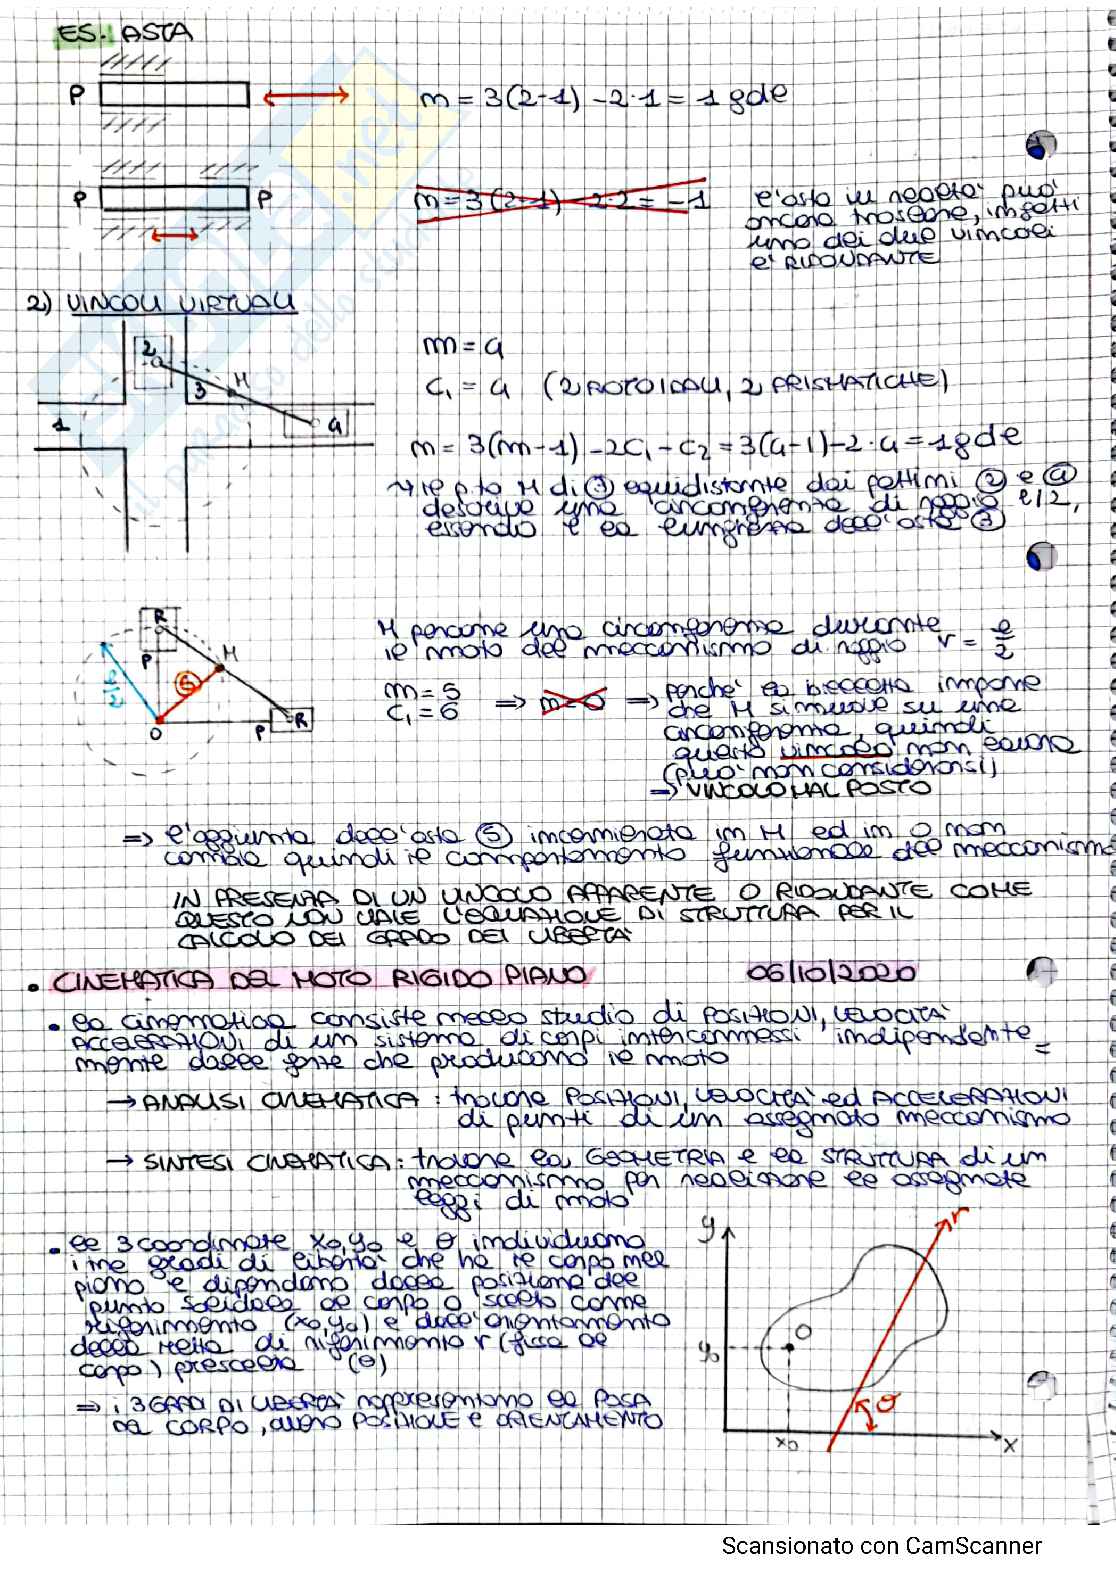 ES. ASTA
P
m = 3(2-1) - 2·1 = 1 gdl
P P
m = 3(2-1) - 2·2 = -1
l'asta in realtà può
ancora traslare, infatti
uno dei due vincoli
è RIDONDANTE
2) VINCOLI VIRTUALI
2
3 M
1
4
m = 4
C₁ = 4 (2 ROTOIDALI, 2 PRISMATICHE)
m = 3(m-1) - 2C₁ - C₂ = 3(4-1) - 2·4 = 1 gdl
↳ il p.to M di ③ equidistante dai pattini ② e ④
descrive una circonferenza di raggio l/2,
essendo l la lunghezza dell'asta ③
R
P
M
⑤
l/2
O
P R
M percorre una circonferenza durante
il moto del meccanismo di raggio r = l/2
m = 5
C₁ = 6
⇒ m = 0 ⇒ perché la biella impone
che M si muove su una
circonferenza, quindi
questo vincolo non lavora
(può non considerarsi)
→ VINCOLO MAL POSTO
⇒ l'aggiunta dell'asta ⑤ incernierata in M ed in O non
cambia quindi il comportamento funzionale del meccanismo
IN PRESENZA DI UN VINCOLO APPARENTE O RIDONDANTE COME
QUESTO NON VALE L'EQUAZIONE DI STRUTTURA PER IL
CALCOLO DEI GRADO DEI LIBERTÀ
• CINEMATICA DEL MOTO RIGIDO PIANO 06/10/2020
• la cinematica consiste nello studio di POSIZIONI, VELOCITÀ
ACCELERAZIONI di un sistema di corpi interconnessi indipendente=
mente dalle forze che producono il moto
→ ANALISI CINEMATICA: trovare POSIZIONI, VELOCITÀ ed ACCELERAZIONI
di punti di un assegnato meccanismo
→ SINTESI CINEMATICA: trovare la GEOMETRIA e la STRUTTURA di un
meccanismo per realizzare le assegnate
leggi di moto
• le 3 coordinate x₀, y₀ e θ individuano
i tre gradi di libertà che ha il corpo nel
piano e dipendono dalla posizione del
punto solidale al corpo O scelto come
riferimento (x₀, y₀) e dall'orientamento
della retta di riferimento r (fissa al
corpo) prescelta (θ)
⇒ i 3 GRADI DI LIBERTÀ rappresentano la POSA
DEL CORPO, ovvero POSIZIONE e ORIENTAMENTO
y
r
O
y₀
θ
x₀
x
Scansionato con CamScanner